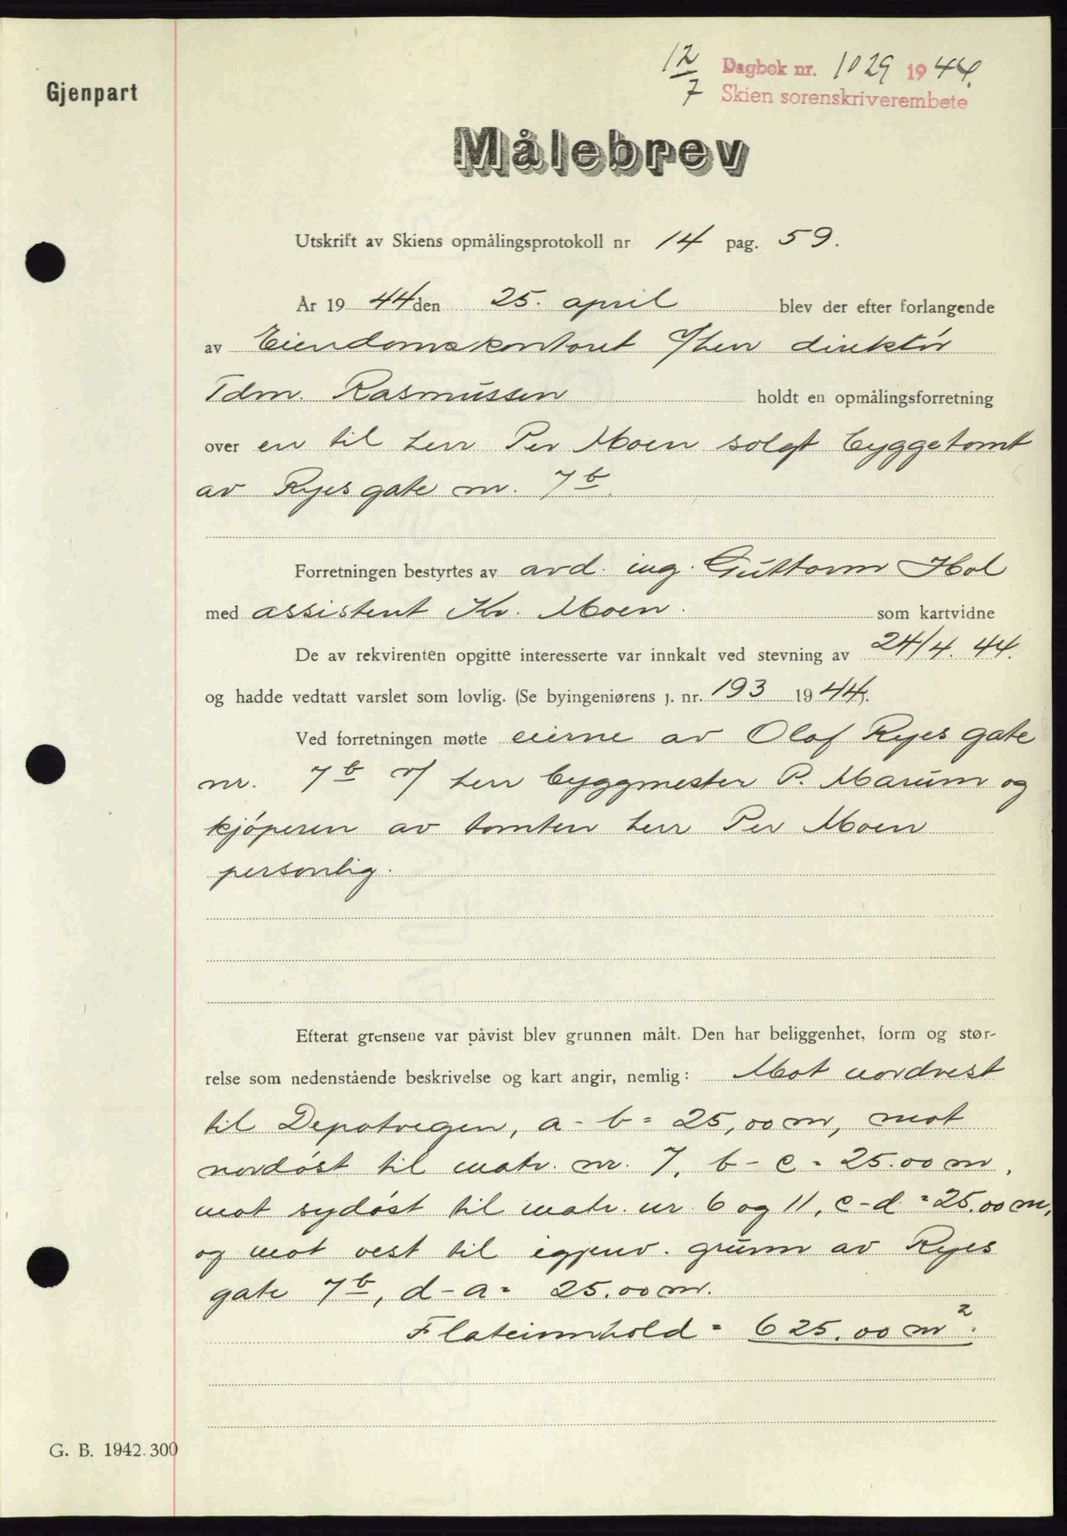 12/7 Dagbok nr. 1029 1944.
Skien sorenskriverembete
Gjenpart
Målebrev
Utskrift av Skiens opmålingsprotokoll nr 14 pag. 59.
År 1944 den 25. april blev der efter forlangende
av Eiendomskontoret v/herr direktör
Tdm. Rasmussen holdt en opmålingsforretning
over en til herr Per Moen solgt byggetomt
av Ryesgate nr. 7b.
Forretningen bestyrtes av avd. ing. Guttorm Hol
med assistent Kr. Moen. som kartvidne
De av rekvirenten opgitte interesserte var innkalt ved stevning av 24/4. 44.
og hadde vedtatt varslet som lovlig. (Se byingeniørens j. nr. 193 1944).
Ved forretningen møtte eierne av Olaf Ryes gate
nr. 7b v/ herr byggmester P. Marum og
kjöperen av tomten herr Per Moen
personlig.
Efterat grensene var påvist blev grunnen målt. Den har beliggenhet, form og stør-
relse som nedenstående beskrivelse og kart angir, nemlig: Mot nordvest
til Depotvegen, a - b = 25,00 m, mot
nordöst til matr. nr. 7, b - c = 25.00 m,
mot sydöst til matr. nr 6 og 11, c - d = 25.00 m,
og mot vest til igjenv. grunn av Ryes
gate 7b, d - a = 25.00 m.
Flateinnhold = 625.00 m2.
G. B. 1942. 300